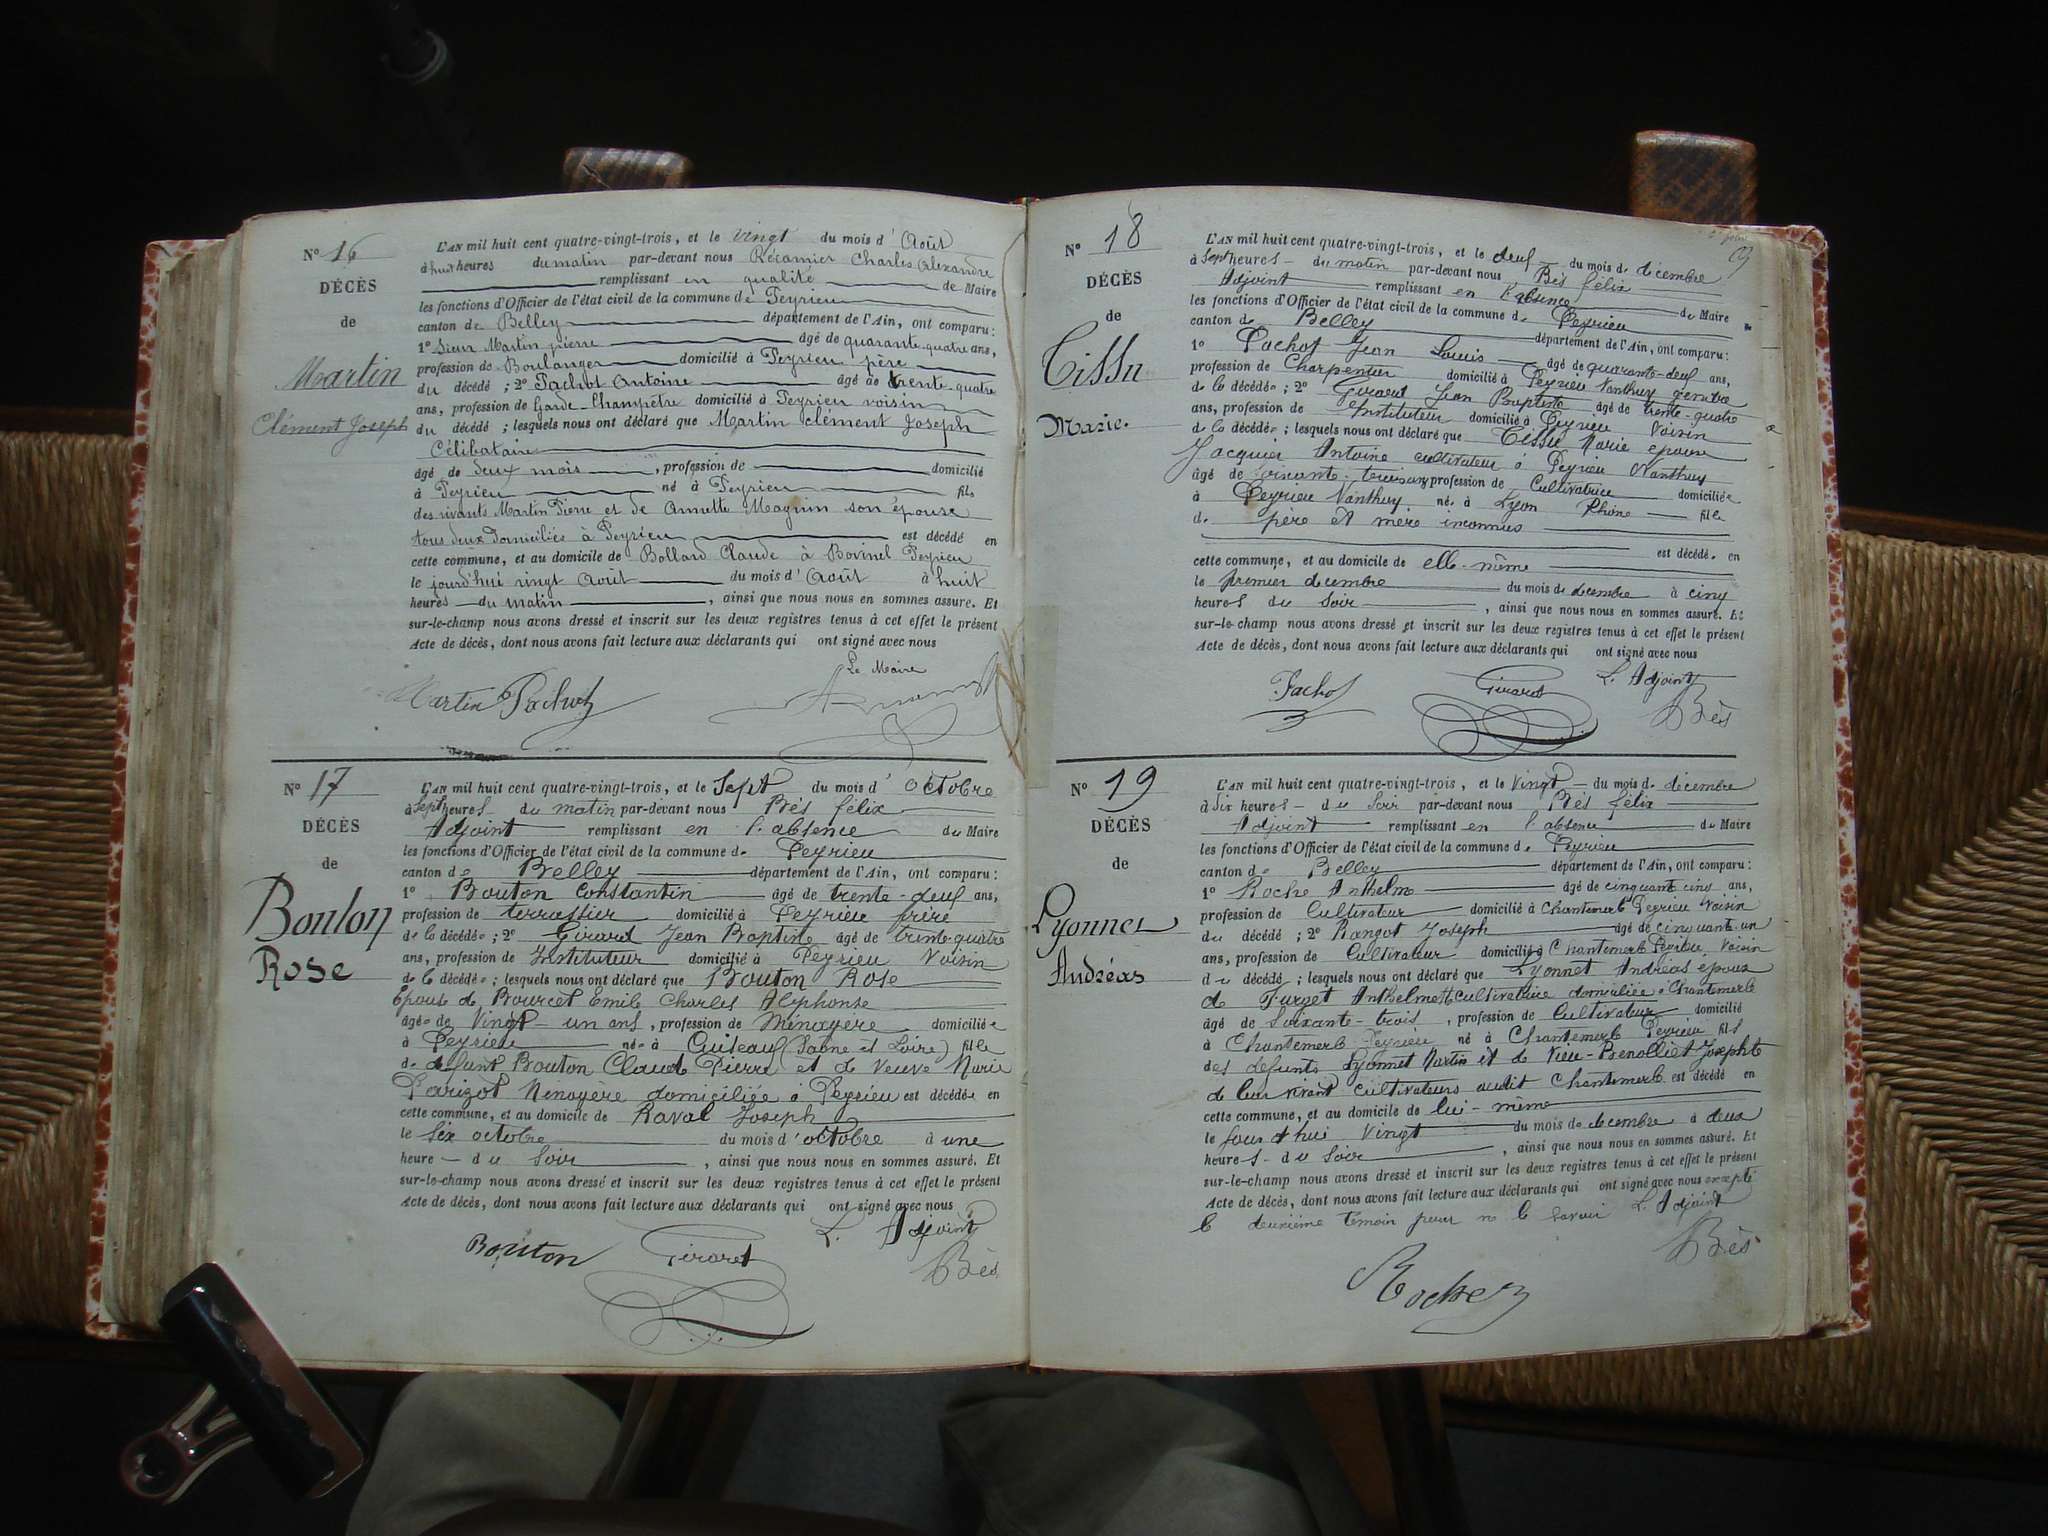 N° 16
DÉCÈS
de
Martin
Clément Joseph
L'AN mil huit cent quatre-vingt-trois, et le vingt du mois d'Août
à huit heures du matin par-devant nous Récamier Charles Alexandre
remplissant en qualité de Maire
les fonctions d'Officier de l'état civil de la commune de Peyrieu
canton de Belley département de l'Ain, ont comparu:
1° Sieur Martin pierre âgé de quarante-quatre ans,
profession de Boulanger domicilié à Peyrieu père
du décédé; 2° Pachot Antoine âgé de trente-quatre
ans, profession de Garde-Champêtre domicilié à Peyrieu voisin
du décédé; lesquels nous ont déclaré que Martin Clément Joseph
Célibataire
âgé de deux mois, profession de domicilié
à Peyrieu né à Peyrieu fils
des vivants Martin Pierre et de Annette Magnin son épouse
tous deux Domiciliés à Peyrieu est décédé en
cette commune, et au domicile de Bollard Claude à Bovinel Peyrieu
le jourd'hui vingt Août du mois d'Août à huit
heures du matin, ainsi que nous nous en sommes assuré. Et
sur-le-champ nous avons dressé et inscrit sur les deux registres tenus à cet effet le présent
Acte de décès, dont nous avons fait lecture aux déclarants qui ont signé avec nous
Le Maire
Martin Pachot
N° 17
DÉCÈS
de
Bouton
Rose
L'AN mil huit cent quatre-vingt-trois, et le Sept du mois d'octobre
à sept heures du matin par-devant nous Bès félix
Adjoint remplissant en l'absence du Maire
les fonctions d'Officier de l'état civil de la commune de Peyrieu
canton de Belley département de l'Ain, ont comparu:
1° Bouton Constantin âgé de trente-deux ans,
profession de terrassier domicilié à Peyrieu frère
de la décédée; 2° Girard Jean Baptiste âgé de trente-quatre
ans, profession de Instituteur domicilié à Peyrieu Voisin
de la décédée; lesquels nous ont déclaré que Bouton Rose
Épouse de Bourcet Emile Charles Alphonse
âgée de Vingt-un ans, profession de Ménagère domiciliée
à Peyrieu née à Cuiseaux (Saône et Loire) fille
de défunt Bouton Claude Pierre et de Veuve Marie
Parizot Ménagère domiciliée à Peyrieu est décédée en
cette commune, et au domicile de Raval Joseph
le Six octobre du mois d'octobre à une
heure du Soir, ainsi que nous nous en sommes assuré. Et
sur-le-champ nous avons dressé et inscrit sur les deux registres tenus à cet effet le présent
Acte de décès, dont nous avons fait lecture aux déclarants qui ont signé avec nous
L'Adjoint
Bouton Girard Bès
N° 18
DÉCÈS
de
Tissu
Marie.
L'AN mil huit cent quatre-vingt-trois, et le deux du mois de décembre
à Sept heures du matin par-devant nous Bès félix
Adjoint remplissant en l'absence du Maire
les fonctions d'Officier de l'état civil de la commune de Peyrieu
canton de Belley département de l'Ain, ont comparu:
1° Pachot Jean Louis âgé de quarante-deux ans,
profession de Charpentier domicilié à Peyrieu Nanthuy gendre
de la décédée; 2° Girard Jean Baptiste âgé de trente-quatre
ans, profession de Instituteur domicilié à Peyrieu Voisin
de la décédée; lesquels nous ont déclaré que Tissu Marie epouse
Jacquier Antoine cultivateur à Peyrieu Nanthuy
âgé de soixante-treize ans profession de Cultivatrice domiciliée
à Peyrieu Nanthuy née à Lyon Rhône fille
de père et mère inconnus
est décédée en
cette commune, et au domicile de elle-même
le premier decembre du mois de decembre à cinq
heures du soir, ainsi que nous nous en sommes assuré. Et
sur-le-champ nous avons dressé et inscrit sur les deux registres tenus à cet effet le présent
Acte de décès, dont nous avons fait lecture aux déclarants qui ont signé avec nous
L'Adjoint
Pachot Girard Bès
N° 19
DÉCÈS
de
Lyonnet
Andréas
L'AN mil huit cent quatre-vingt-trois, et le Vingt du mois de décembre
à Six heures du Soir par-devant nous Bès félix
Adjoint remplissant en l'absence du Maire
les fonctions d'Officier de l'état civil de la commune de Peyrieu
canton de Belley département de l'Ain, ont comparu:
1° Roche Anthelme âgé de cinquante cinq ans,
profession de Cultivateur domicilié à Chantemerle Peyrieu Voisin
du décédé; 2° Rangot Joseph âgé de cinquante-un
ans, profession de Cultivateur domicilié à Chantemerle Peyrieu Voisin
du décédé; lesquels nous ont déclaré que Lyonnet Andréas epoux
de Furget Anthelmette cultivatrice domiciliée à Chantemerle
âgé de Soixante-trois, profession de Cultivateur domicilié
à Chantemerle Peyrieu né à Chantemerle Peyrieu fils
des défunts Lyonnet Martin et de Vieu-Benolliet Josephte
de leur vivant cultivateurs audit Chantemerle est décédé en
cette commune, et au domicile de lui-même
le jourd'hui Vingt du mois de decembre à deux
heures du Soir, ainsi que nous nous en sommes assuré. Et
sur-le-champ nous avons dressé et inscrit sur les deux registres tenus à cet effet le présent
Acte de décès, dont nous avons fait lecture aux déclarants qui ont signé avec nous excepté
le deuxième temoin pour ne le savoir L'Adjoint
Bès
Roche